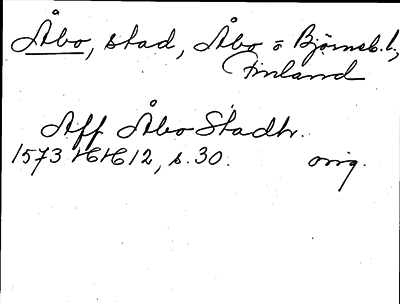 Åbo, stad, Åbo o Björneb. l.,
Finland
Aff Åbo Stadh.
1573 HH 12, s. 30. orig.